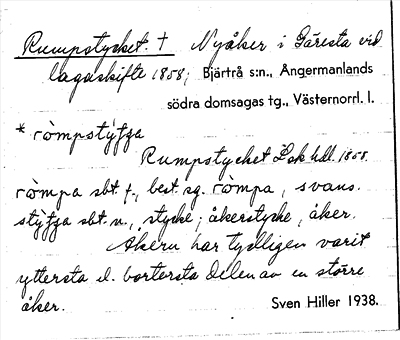 Rumpstycket. † Nyåker i Gåresta vid
lagaskifte 1858; Bjärtrå s:n., Ångermanlands
södra domsagas tg., Västernorrl. l.
* ròmpstýfga
Rumpstycket Lsk hdl. 1858.
ròmpa sbt. f., best. sg. ròmpa, svans.
stýfga sbt. n., stycke; åkerstycke, åker.
Åkern har tydligen varit
yttersta el. bortersta delen av en större
åker. Sven Hiller 1938.